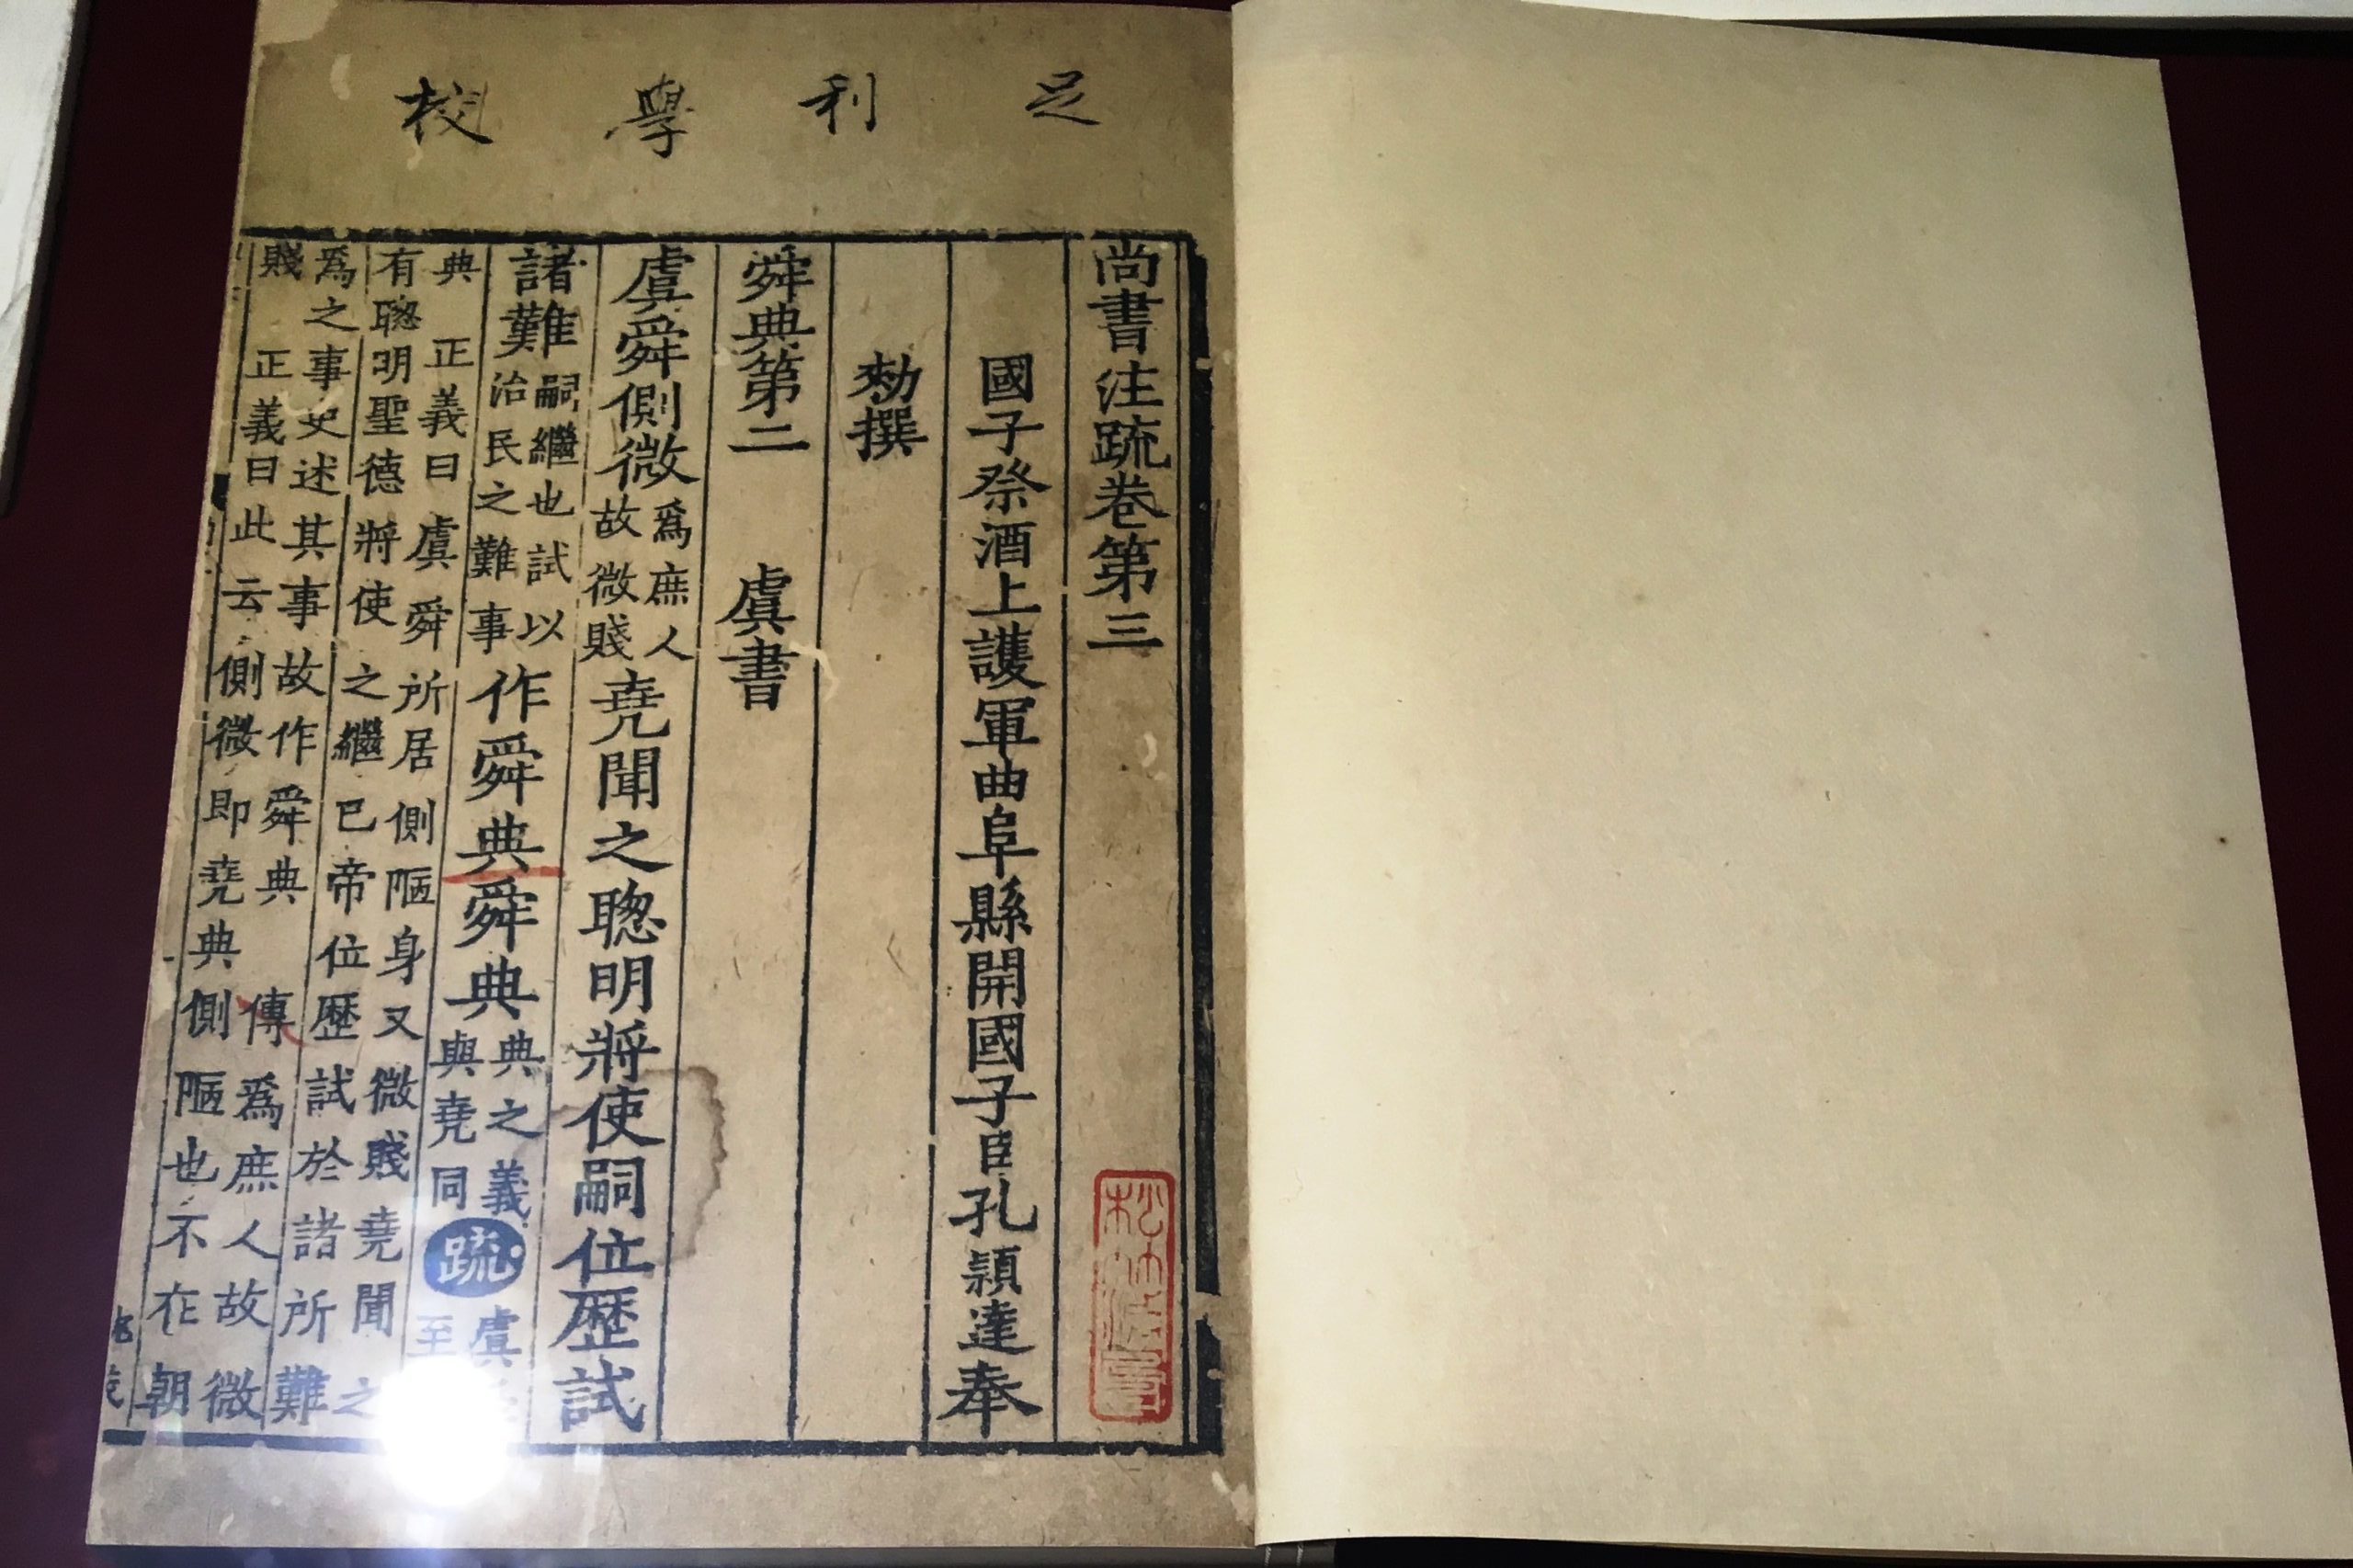 足利學校
尚書注疏卷第三
國子祭酒上護軍曲阜縣開國子臣孔穎達奉
勑撰
舜典第二 虞書
虞舜側微爲庶人故微賤堯聞之聦明將使嗣位歷試
諸難嗣繼也試以治民之難事作舜典舜典典之義與堯同疏虞至
典 正義曰虞舜所居側陋身又微賤堯聞之
有聦明聖德將使之繼已帝位歷試於諸所難
爲之事史述其事故作舜典 傳爲庶人故微
賤 正義曰此云側微即堯典側陋也不在朝